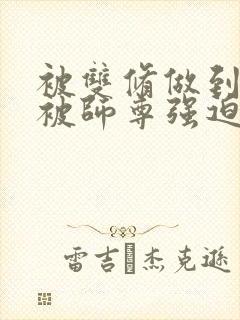 被雙脩做到
被師尊强迫
雷吉 杰克遜